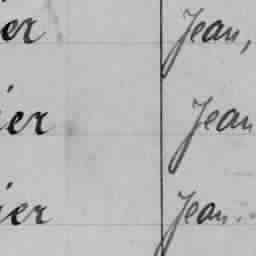 er Jean,
ier Jean
ier Jean.